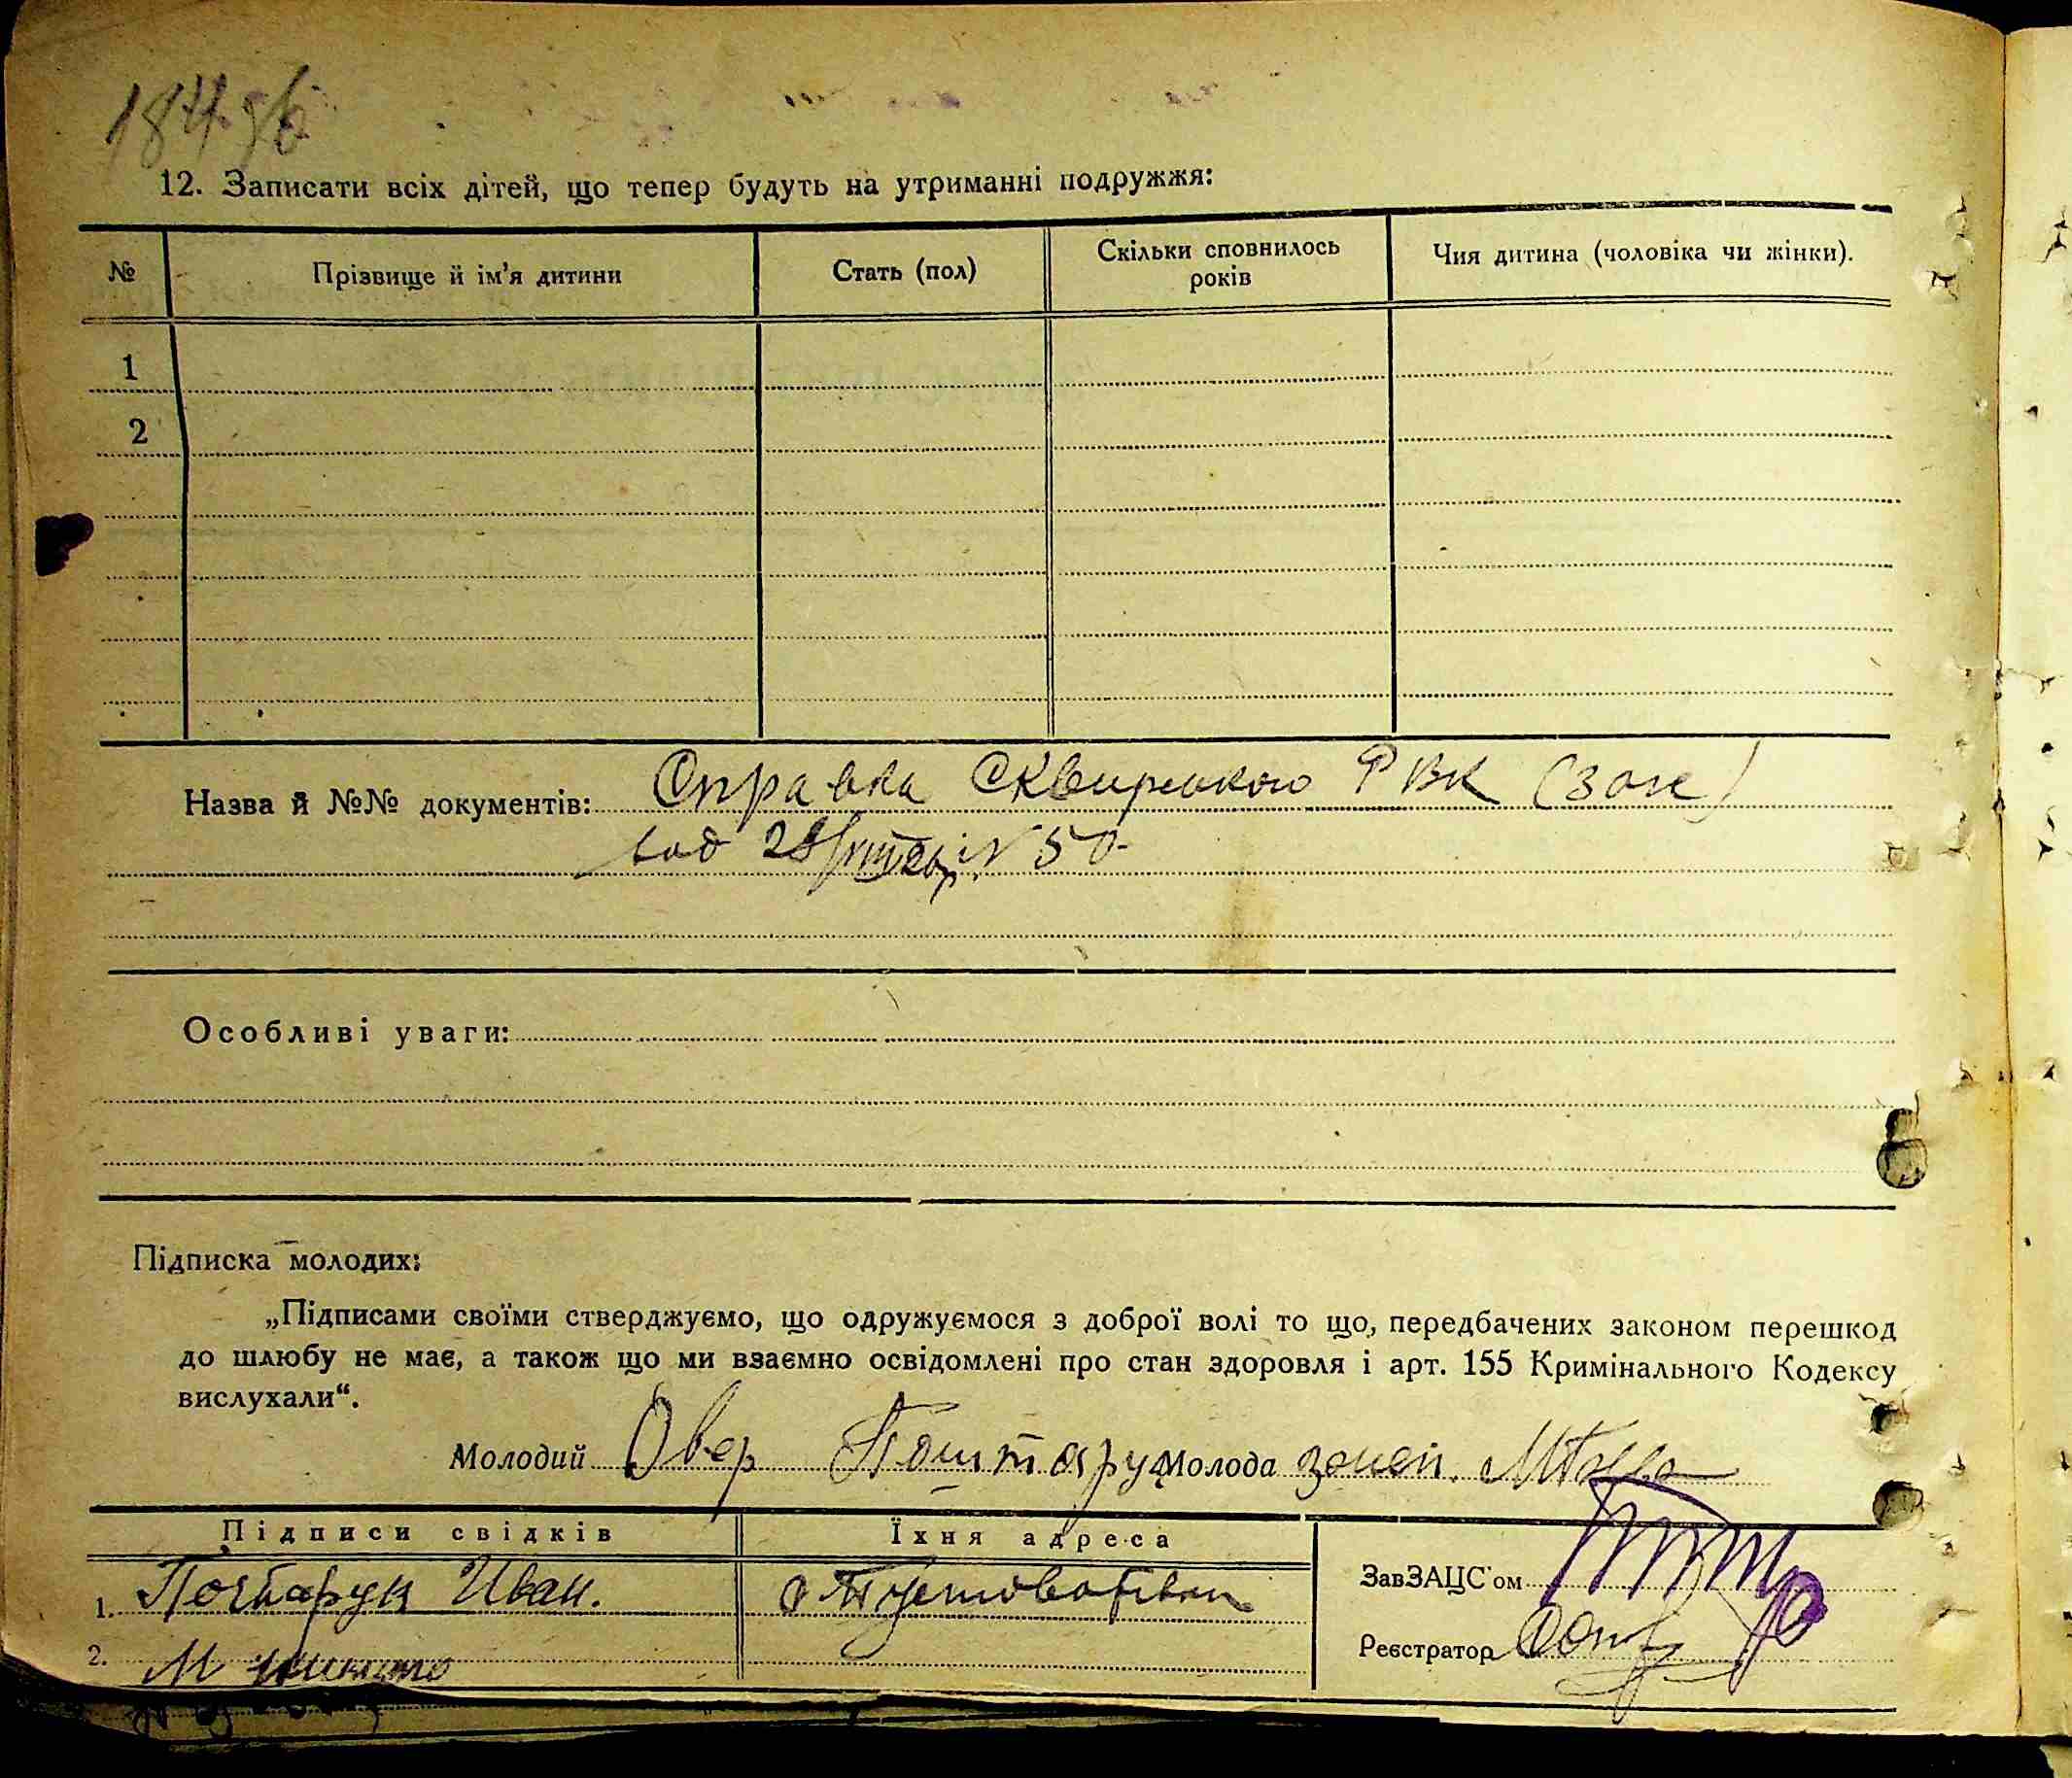 12. Записати всіх дітей, що тепер будуть на утриманні подружжя:
№ Прізвище й ім'я дитини Стать (пол) Скільки сповнилось років Чия дитина (чоловіка чи жінки).
1
2
Назва й №№ документів: Справка Сквирського РВК (заг)
від 28/VIII 26 р. N 50
Особливі уваги:
Підписка молодих:
„Підписами своїми стверджуємо, що одружуємося з доброї волі то що, передбачених законом перешкод
до шлюбу не має, а також що ми взаємно освідомлені про стан здоровля і арт. 155 Кримінального Кодексу
вислухали“.
Молодий Овер Поштарук Молода
Підписи свідків Їхня адреса
ЗавЗАЦС'ом
1. Поштарук Иван.
Реєстратор
2.